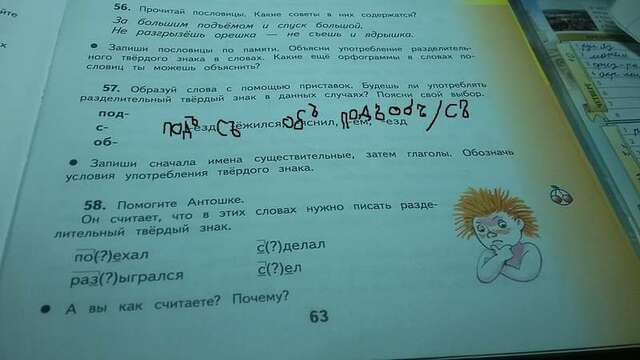 56. Прочитай пословицы. Какие советы в них содержатся?
За большим подъёмом и спуск большой.
Не разгрызёшь орешка — не съешь и ядрышка.
• Запиши пословицы по памяти. Объясни употребление разделитель-
ного твёрдого знака в словах. Какие ещё орфограммы в словах по-
словиц ты можешь объяснить?
57. Образуй слова с помощью приставок. Будешь ли употреблять
разделительный твёрдый знак в данных случаях? Поясни свой выбор.
под-
с-
об-
подъезд, съёжился, объяснил, подъём, объ/съезд
• Запиши сначала имена существительные, затем глаголы. Обозначь
условия употребления твёрдого знака.
58. Помогите Антошке.
Он считает, что в этих словах нужно писать разде-
лительный твёрдый знак.
по(?)ехал с(?)делал
раз(?)ыгрался с(?)ел
• А вы как считаете? Почему?
63